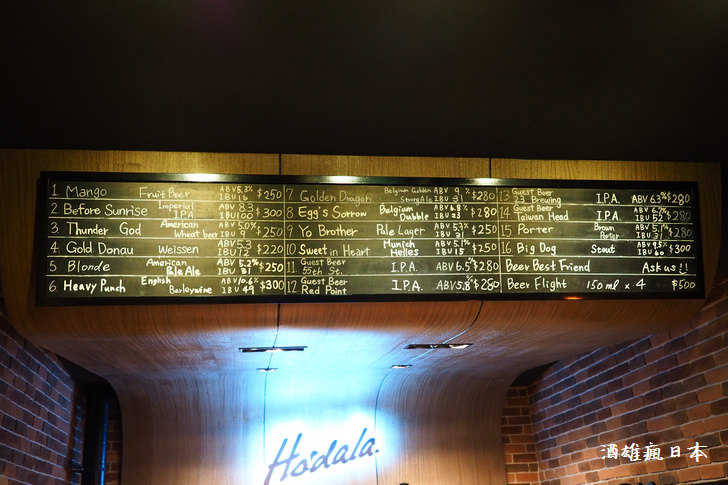 1. Mango Fruit Beer ABV 5.3% IBU 16 $250
2. Before Sunrise Imperial I.P.A. ABV 8.3 IBU 100 $300
3 Thunder God American Wheat beer ABV 5.0% IBU 9 $250
4. Gold Donau Weissen ABV 5.3 IBU 12 $220
5 Blonde American Pale Ale ABV 5.2% IBU 31 $250
6 Heavy Punch English Barleywine ABV 10.6% IBU 49 $300
7 Golden Dragon Belgian Golden Strong Ale ABV 9 % IBU 31 $280
8 Egg's Sorrow Belgium Dubble ABV 6.8% IBU 23 $280
9 Yo Brother Pale Lager ABV 5.3% IBU 31 $250
10 Sweet in Heart Munich Helles ABV 5.1% IBU 18 $250
11 Guest Beer 55th St. I.P.A. ABV 6.5% $280
12 Guest Beer Red Point I.P.A. ABV 5.8% $280
13 Guest Beer 23 Brewing I.P.A. ABV 6.3% $280
14 Guest Beer Taiwan Head I.P.A. IBU 52 $280
15 Porter Brown Porter ABV 5.1% IBU 31 $280
16 Big Dog Stout ABV 9.5% IBU 60 $300
Beer Best Friend Ask us!!
Beer Flight 150 ml x 4 $500
Ho'dala.
酒雄瘋日本